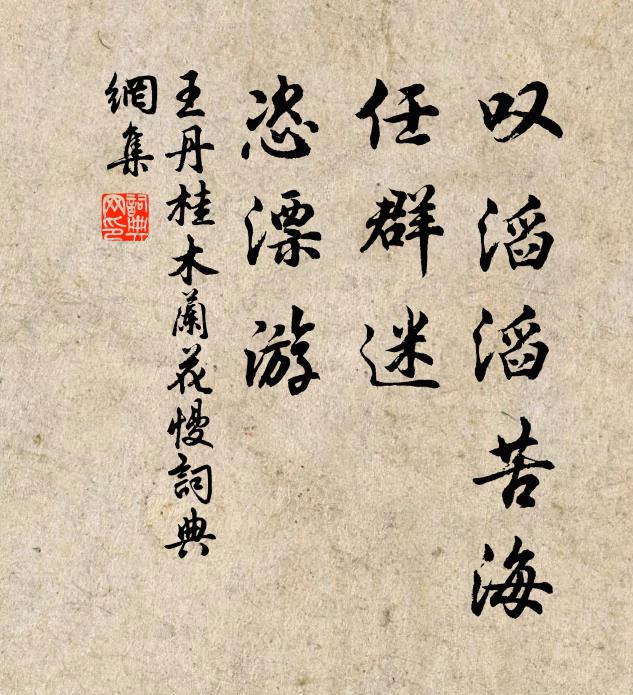 叹滔滔苦海
任群迷
恣漂游
王丹桂木蘭花慢詞典
網集
詞典網印